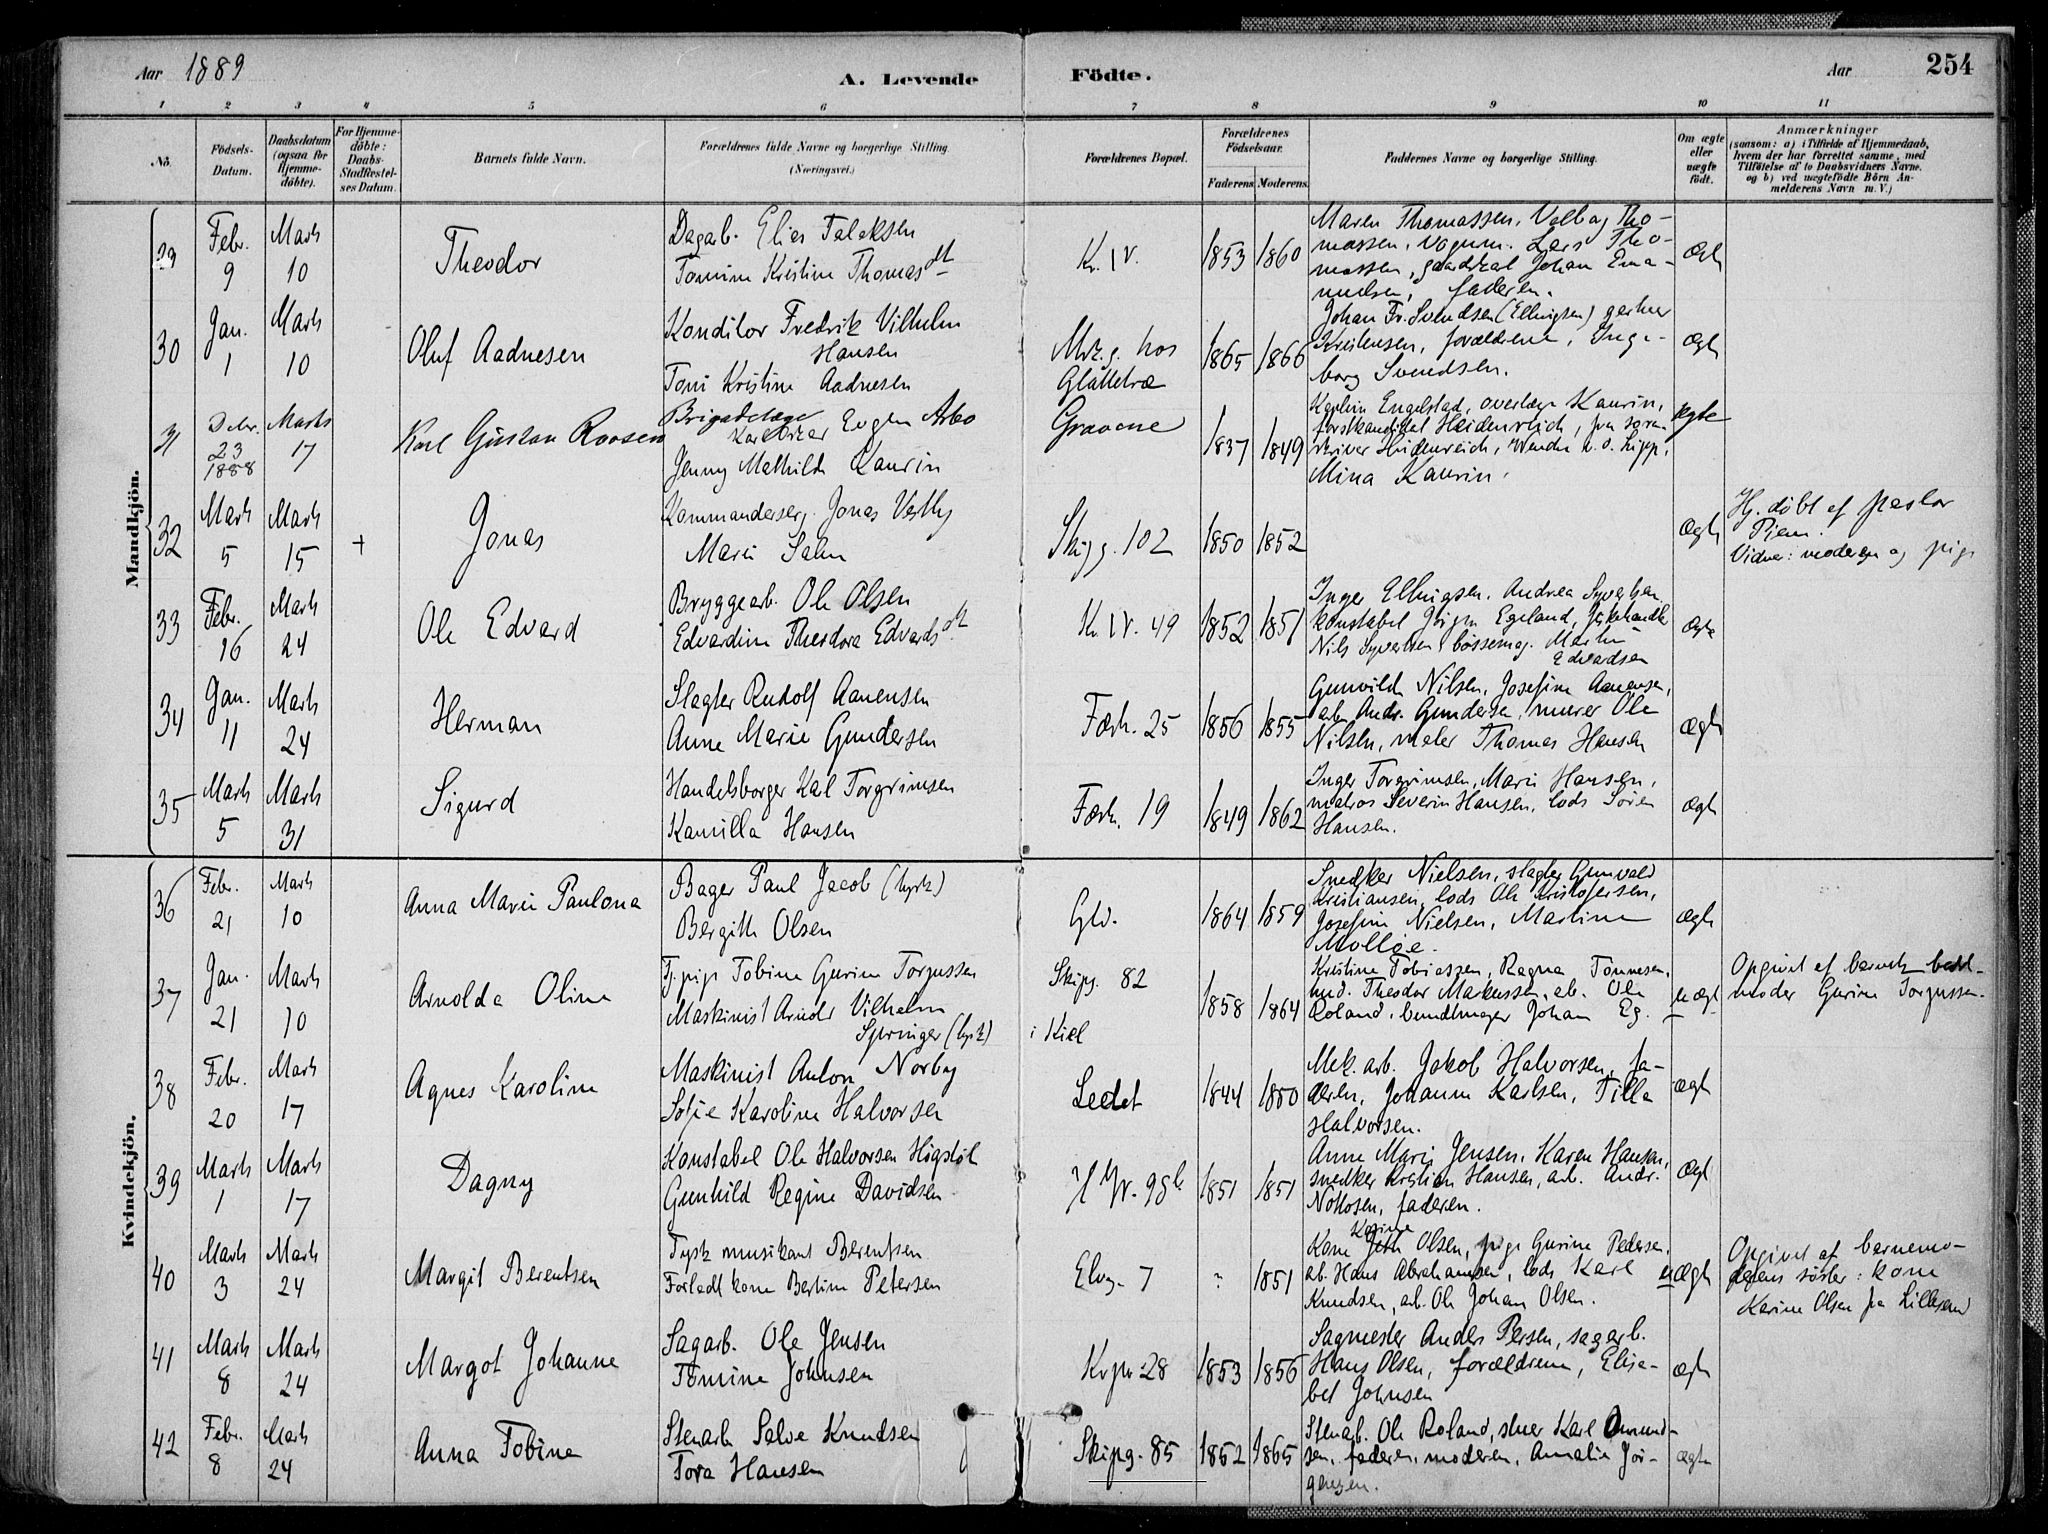 Aar 1889
A. Levende Födte.
Aar
254
1 2 3 4 5 6 7 8 9 10 11
No.
Födsels-Datum.
Daabsdatum (ogsaa for Hjemme-döbte).
For Hjemme-döbte: Daabs-Stadfæstel-ses Datum.
Barnets fulde Navn.
Forældrenes fulde Navne og borgerlige Stilling.
(Næringsvei.)
Forældrenes Bopæl.
Forældrenes Födselsaar.
Faderens. Moderens.
Faddernes Navne og borgerlige Stilling.
Om ægte eller uægte födt.
Anmærkninger
(saasom: a) i Tilfælde af Hjemmedaab, hvem der har forrettet samme, med Tilföielse af to Daabsvidners Navne. og b) ved uægtefödte Börn Anmelderens Navn m. V.)
Mandkjön.
29 Febr. 9 Marts 10 Theodor
Dagarb. Elias Taleksen
Tomine Kristine Thomasdt
Kr. IV. 1853 1860
Maren Thomassen, Valborg Tho-
massen, vognm. Lars Tho-
massen, Johan Ema-
nuelsen, faderen.
Ægte
30 Jan. 1 Marts 10 Oluf Aadnesen
Konditor Fredrik Vilhelm
Hansen
Toni Kristine Aadnesen
Mrk.g. hos
Glattetræ
1865 1866
Johan Fr. Svendsen (Ellingsen) gartner
Kristensen, forældrene, Inge-
borg Svendsen.
Ægte
31 Debr. 23 1888 Marts 17 Karl Gustav Roosen
Brigadelæge
Karl Oskar Eugen Arbo
Jenny Mathilde Kaurin
Gravene 1837 1849
Engelstad, overlæge Kaurin,
forstkandidat Heidenreich, fru soren-
skriver Heidenreich,
Mina Kaurin.
Ægte
32 Marts 5 Marts 15 + Jonas
Kommandersерg. Jonas Vestby
Marie Salm
Skipg. 102 1850 1852
Ægte
Hj. döbt af pastor
Vidner: moderen og pige
33 Febr. 16 Marts 24 Ole Edvard
Bryggearb. Ole Olsen
Edvardine Theodora Edvardsdt
Kr. IV. 49 1852 1851
Inger Ellingsen, Andrea Syvertsen,
konstabel Jörgen Egeland, fiskehandler
Nils Syvertsen, bössemag. Martin
Edvardsen
Ægte
34 Jan. 11 Marts 24 Herman
Slagter Rudolf Aanensen
Anne Marie Gundersen
Færh. 25 1856 1855
Gunvild Nilsen, Josefine Aanensen,
arb. Andr. Gundersen, murer Ole
Nilsen, maler Thomas Hansen
Ægte
35 Marts 5 Marts 31 Sigurd
Handelsborger Karl Torgrimsen
Kamilla Hansen
Færh. 19 1849 1862
Inger Torgrimsen, Marie Hansen,
matros Severin Hansen, lods Sören
Hansen.
Ægte
Kvindekjön.
36 Febr. 21 Marts 10 Anna Marie Paulona
Bager Paul Jacob (tysk)
Bergitte Olsen
Glv. 1864 1859
Snedker Nielsen, slagter Gunvald
Kristiansen, lods Ole Kristofersen,
Josefine Nielsen, Martine
Mollöe.
Ægte
37 Jan. 21 Marts 10 Arnolda Oline
Tj.pige Tobine Gurine Torgussen
Maskinist Arnold Vilhelm
Springer (tysk)
Skipg. 82
i Kiel
1858 1864
Kristine Tobiassen, Ragna Tönnesen,
Theodor Makussen, arb. Ole
Roland, buntmager Johan Eg.
Uægte
Opgivet af barnets bedste-
moder Gurine Torgussen.
38 Febr. 20 Marts 17 Agnes Karoline
Maskinist Anton Norby
Sofie Karoline Halvorsen
Leedet 1844 1850
Mek. arb. Jakob Halvorsen, fa-
deren, Johanne Karlsen, Tilla
Halvorsen.
Ægte
39 Marts 1 Marts 17 Dagny
Konstabel Ole Halvorsen Högstöl
Gunhild Regine Davidsen
98b 1851 1851
Anne Marie Jensen, Karen Hansen,
snedker Kristian Hansen, arb. Andr.
faderen.
Ægte
40 Marts 3 Marts 24 Margit Berentsen
Tysk musikant Berentsen
Forladt kone Bertine Petersen
Elvg. 7 ? 1851
Karine
Kone Olsen, pige Gurine Pedersen,
arb. Hans Abrahamsen, lods Karl
Knudsen, arb. Ole Johan Olsen.
Uægte
Opgivet af barnemo-
derens söster: kone
Karine Olsen fra Lillesand
41 Marts 8 Marts 24 Margot Johanne
Sagarb. Ole Jensen
Tomine Johnsen
Kvpr. 28 1853 1856
Sagmester Anders Persen, sagarb.
Hans Olsen, forældrene, Elisa-
bet Johnsen
Ægte
42 Febr. 8 Marts 24 Anna Tobine
Stenarb. Salve Knudsen
Tora Hansen
Skipg. 85 1852 1865
Stenarb. Ole Roland, stuer Karl Omund-
sen, faderen, moderen, Amalie Jör-
gensen.
Ægte